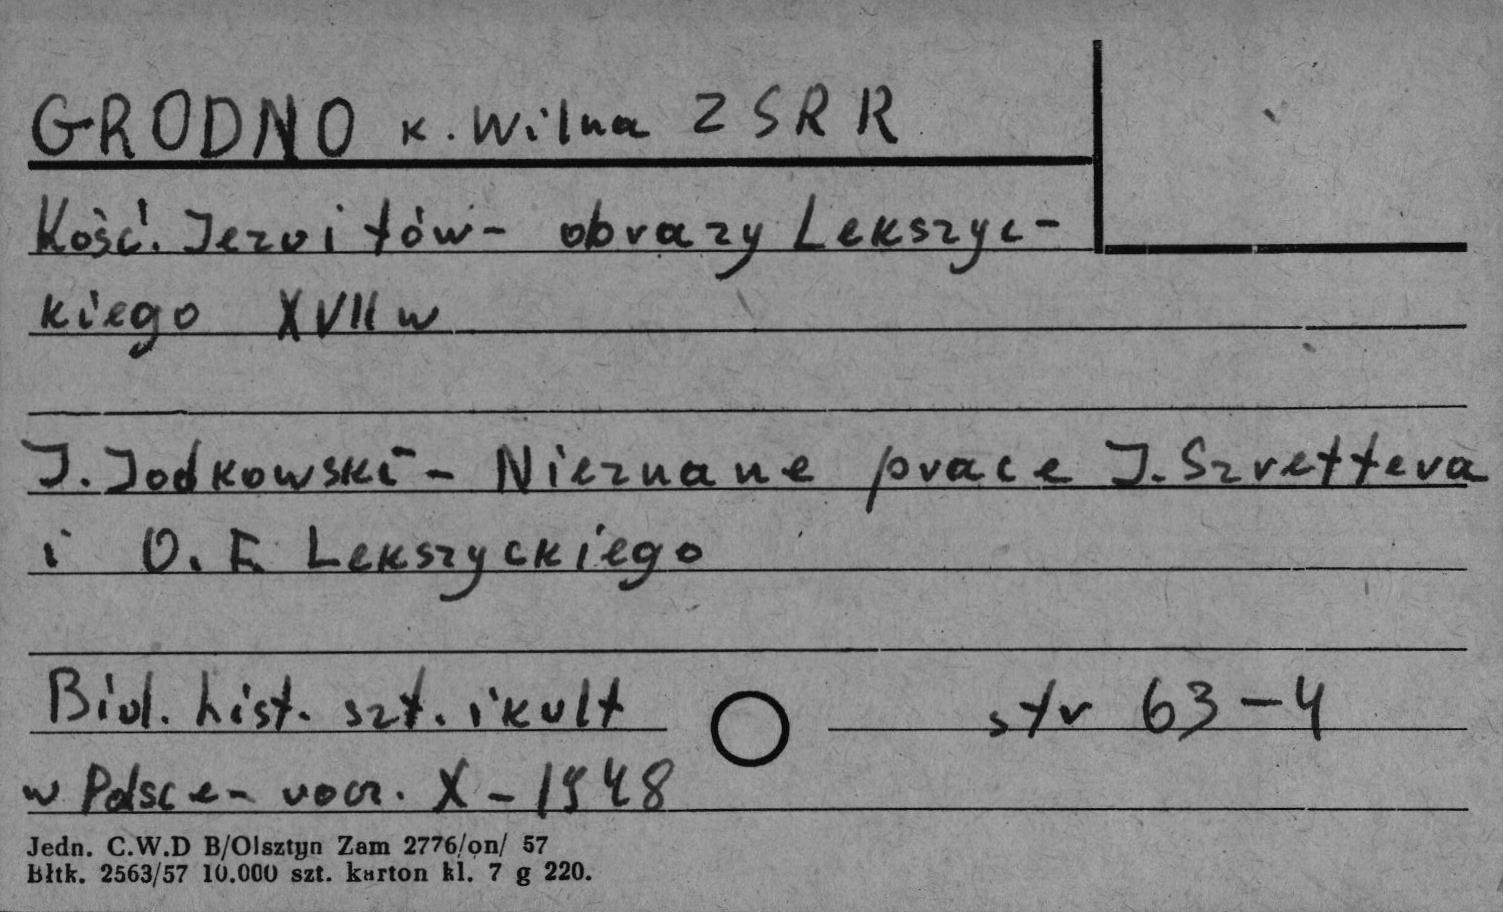 GRODNO k. Wilna ZSRR
Kość. Jezuitów - obrazy Lekszyc-
kiego XVII w
J. Jodkowski - Nieznane prace J. Szrettera
i O. F. Lekszyckiego
Biul. hist. szt. i kult str 63-4
w Polsce - rocz. X - 1948
Jedn. C.W.D B/Olsztyn Zam 2776/on/ 57
Błtk. 2563/57 10.000 szt. karton kl. 7 g 220.